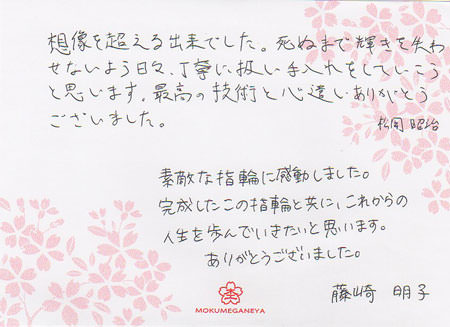 想像を超える出来でした。死ぬまで輝きを失わ
せないよう日々、丁寧に扱い手入れをしていこう
と思います。最高の技術と心遣いありがとう
ございました。
松岡 昭治
素敵な指輪に感動しました。
完成したこの指輪と共に、これからの
人生を歩んでいきたいと思います。
ありがとうございました。
藤崎 明子
MOKUMEGANEYA